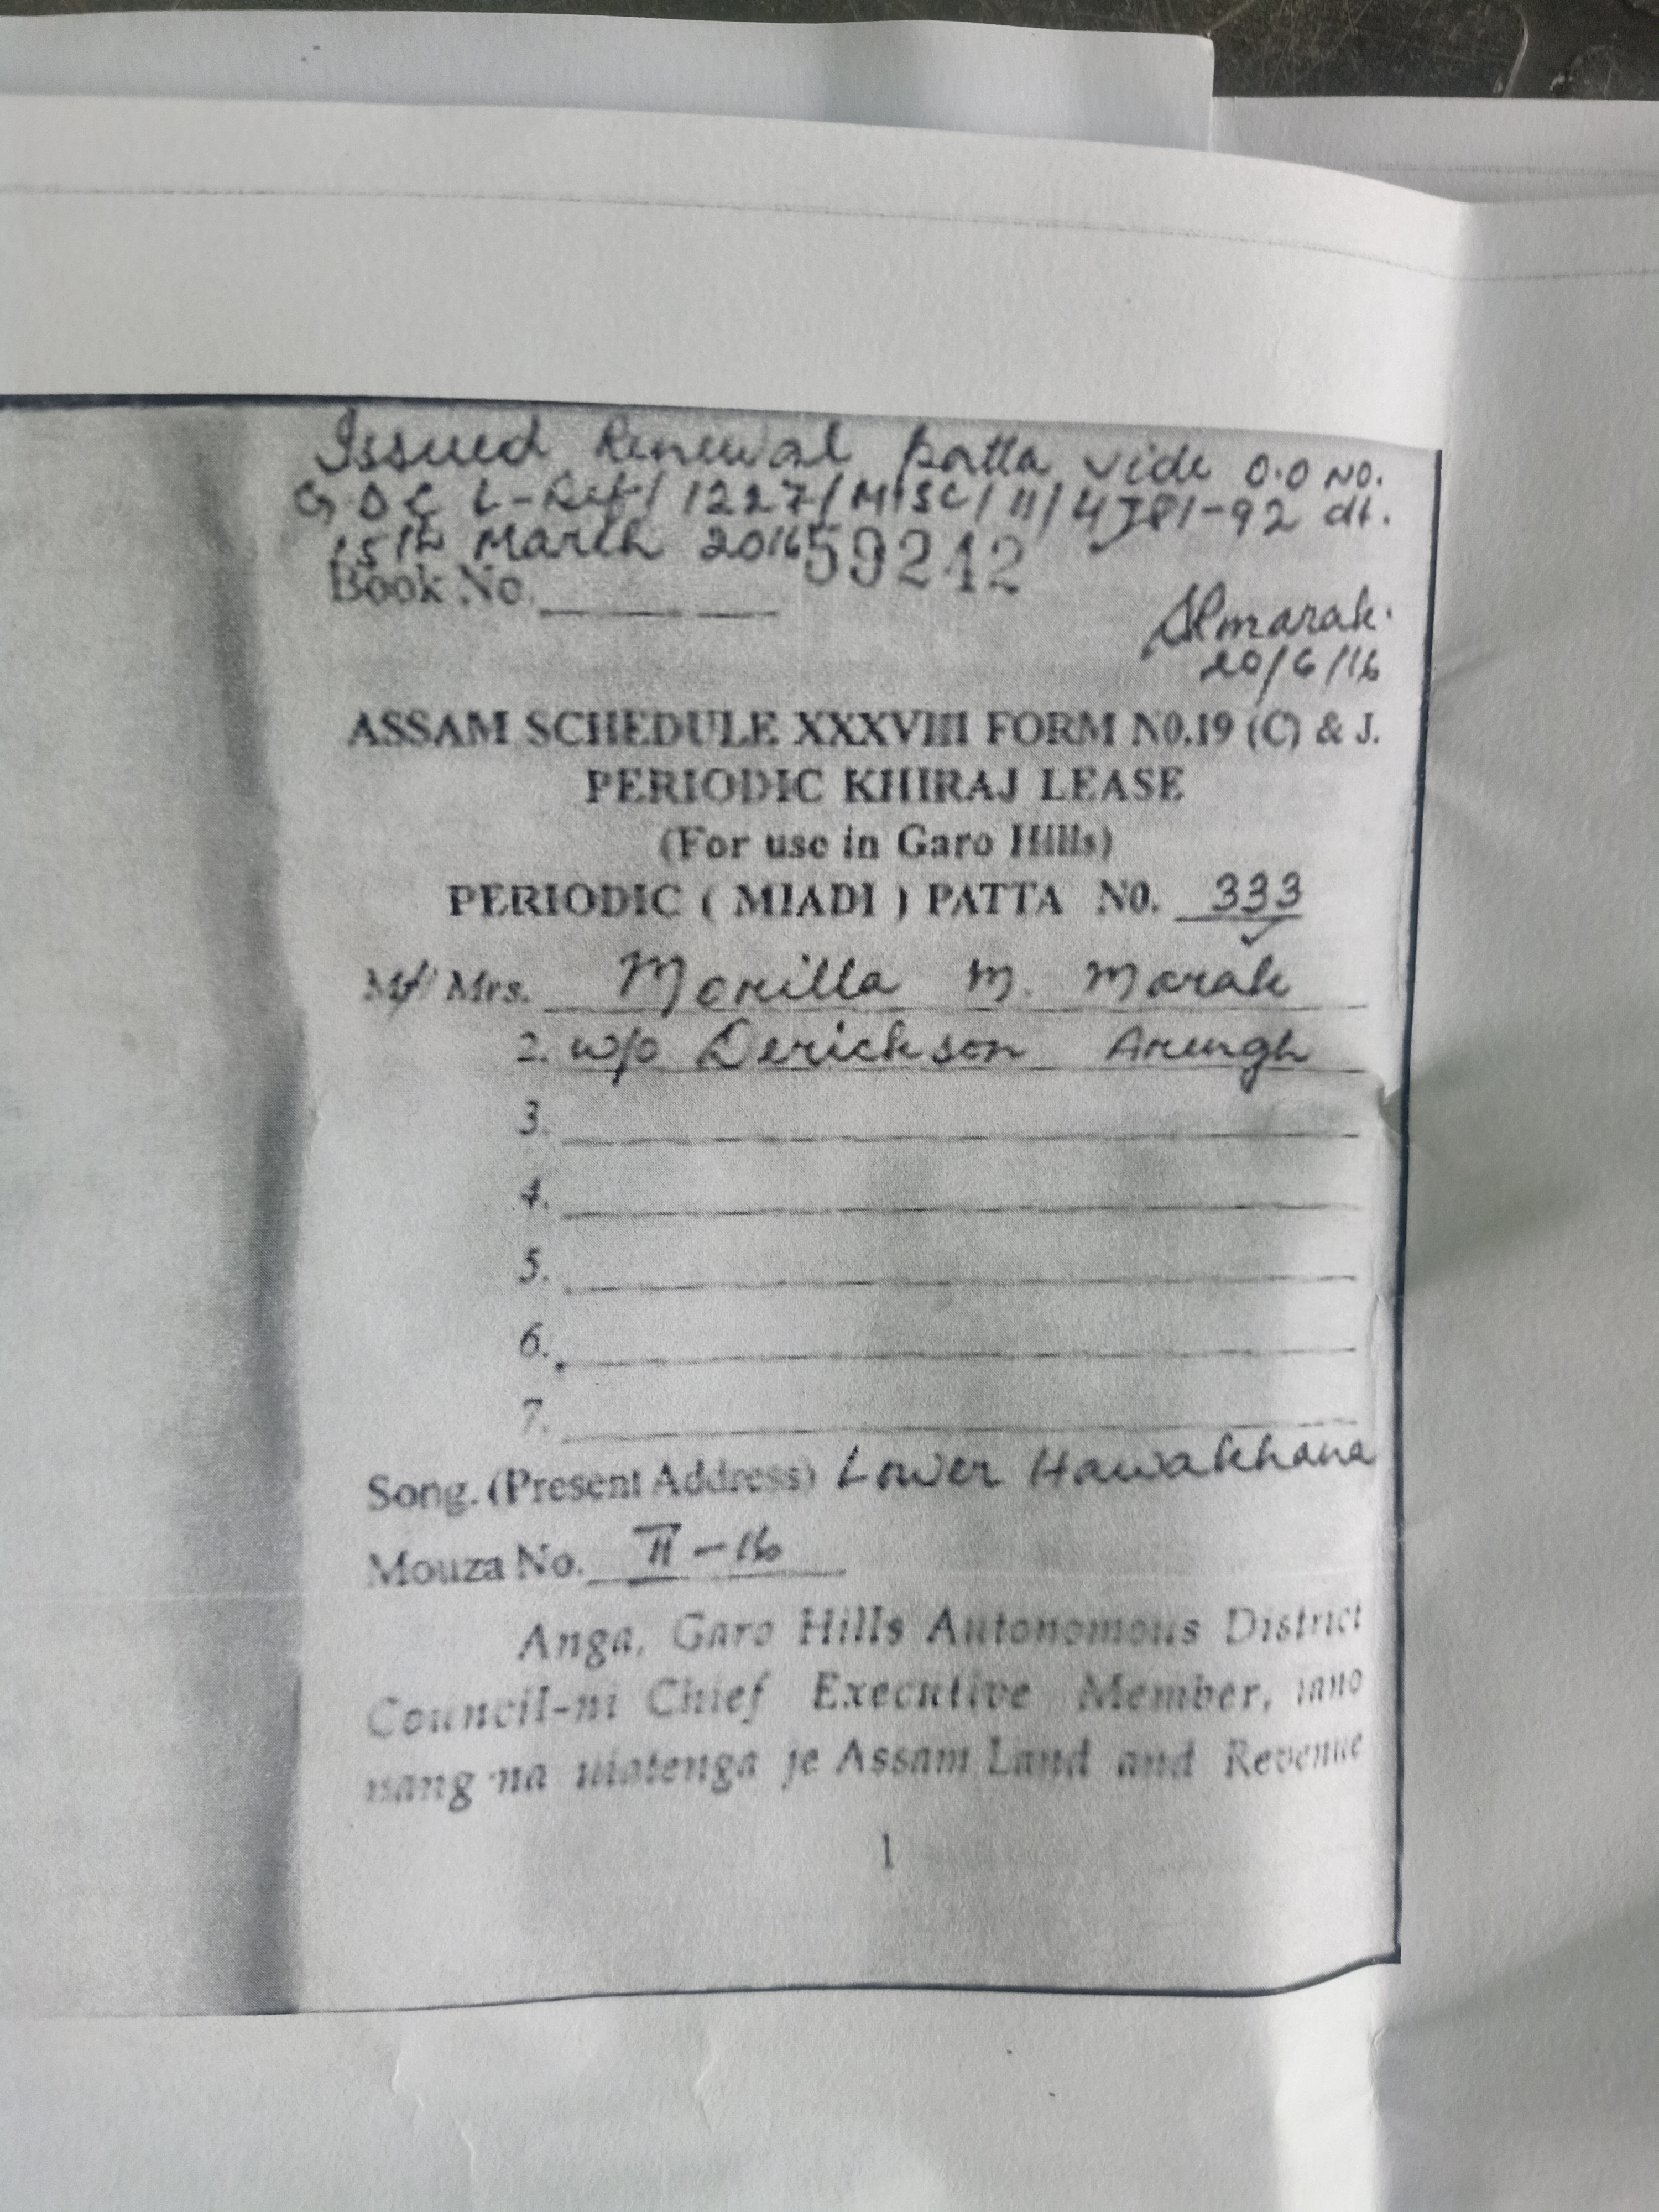 Issued Renewal patta vide O.O NO.
GDC L-Ref/1227/MISC/11/4781-92 dt.
15th March 2016
59242
Book No.
20/6/16
ASSAM SCHEDULE XXXVIII FORM N0.19 (C) & J.
PERIODIC KHIRAJ LEASE
(For use in Garo Hills)
PERIODIC ( MIADI ) PATTA N0. 333
Mr/ Mrs. Monilla M. Marak
2. w/o Derickson Arengh
3.
4.
5.
6.
7.
Song. (Present Address) Lower Hawakhana
Mouza No. II-16
Anga, Garo Hills Autonomous District
Council-ni Chief Executive Member, iano
nang·na matenga je Assam Land and Revenue
1